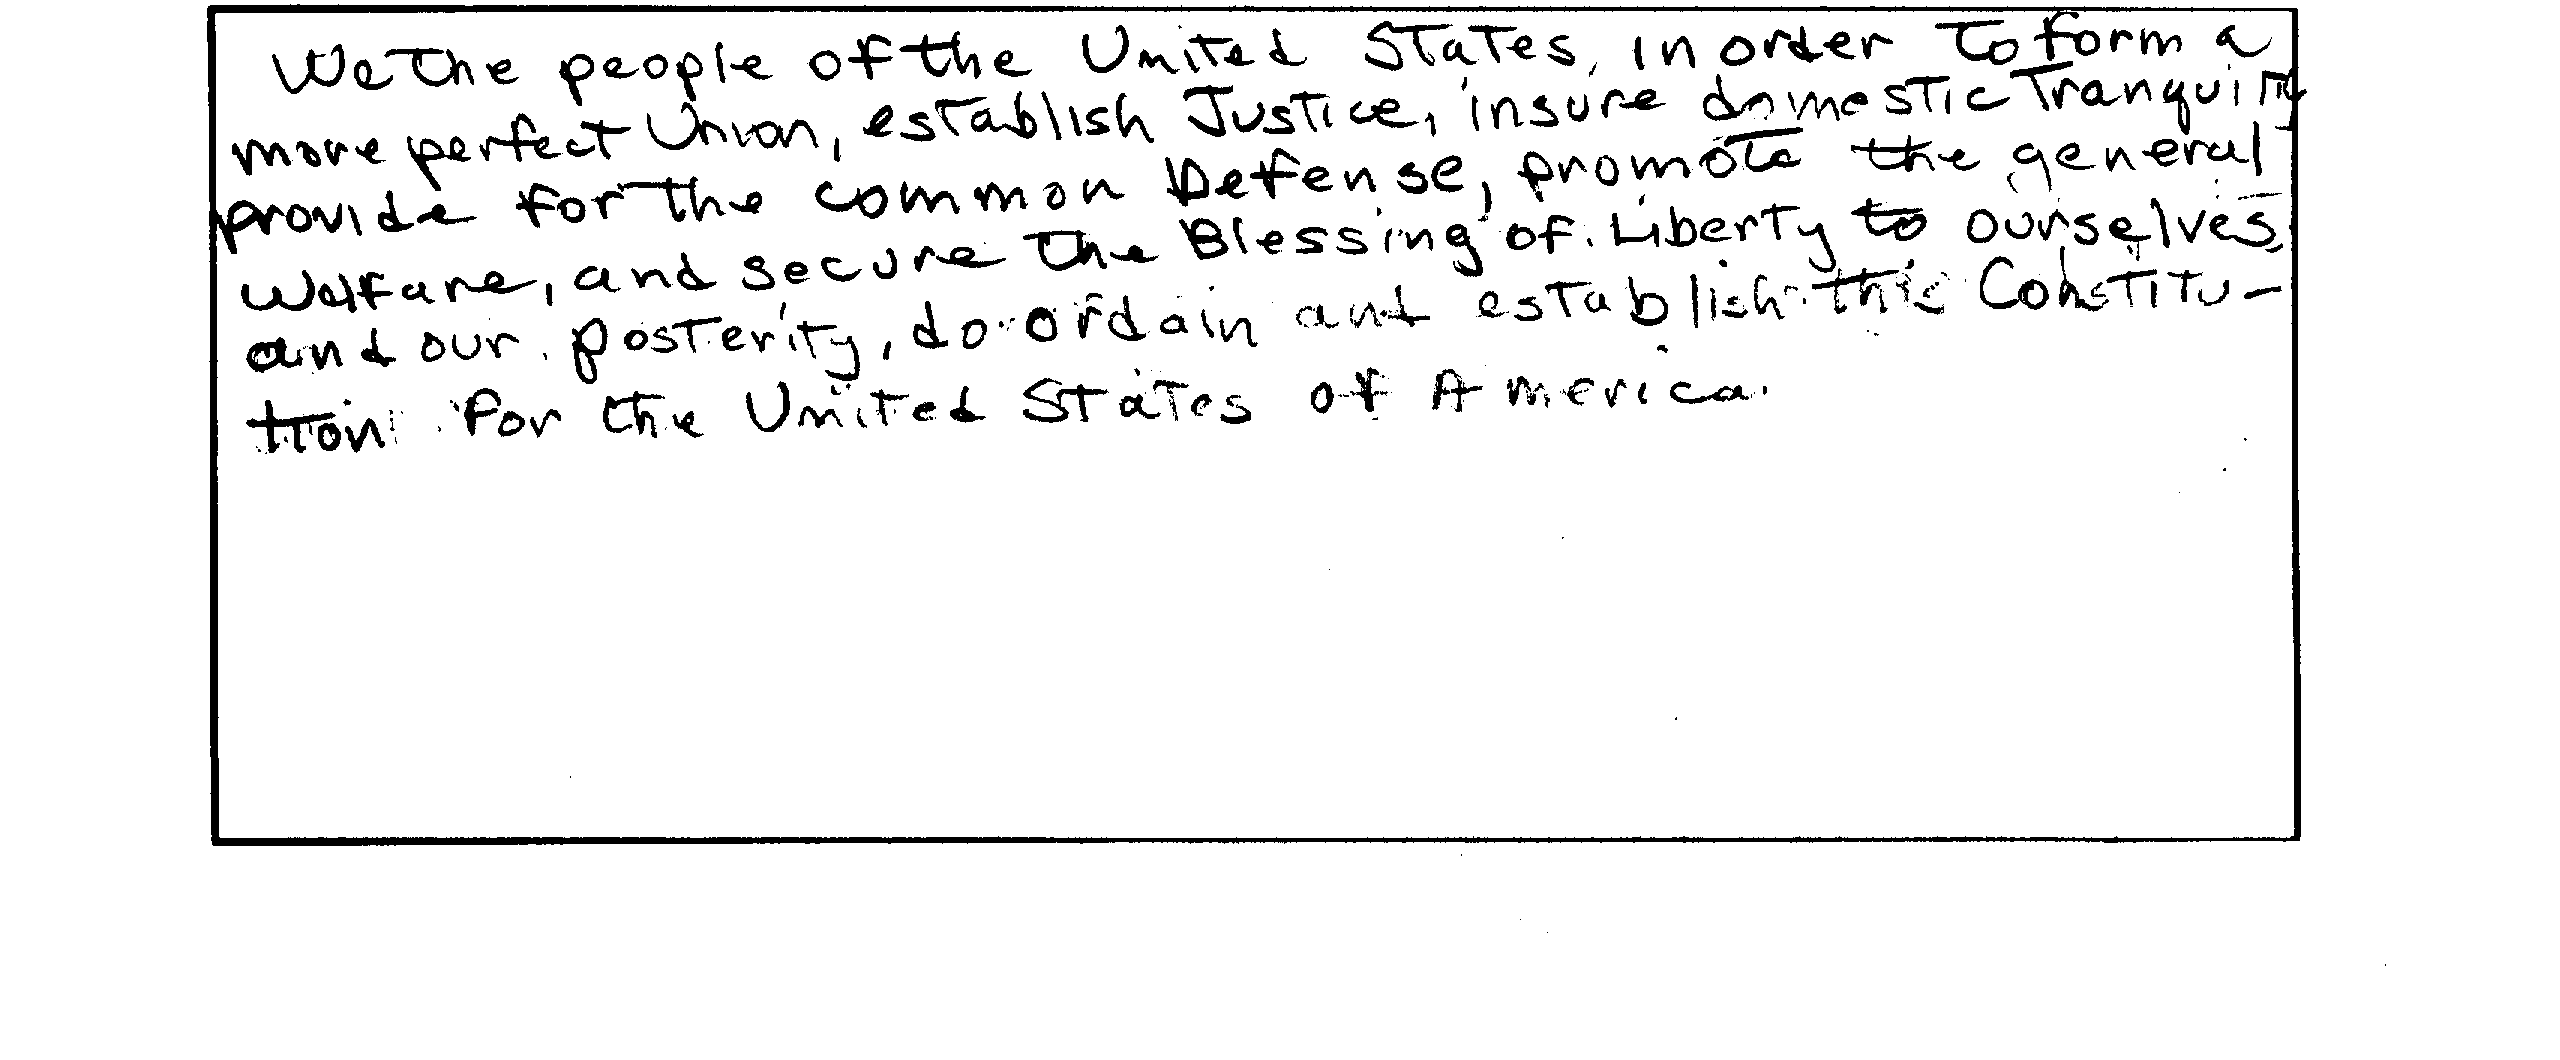 We the people of the United States, in order to form a
more perfect Union, establish Justice, insure domestic Tranquility
provide for the common Defense, promote the general
Welfare, and secure the Blessing of Liberty to ourselves,
and our posterity, do ordain and establish this Constitu-
tion for the United States of America.